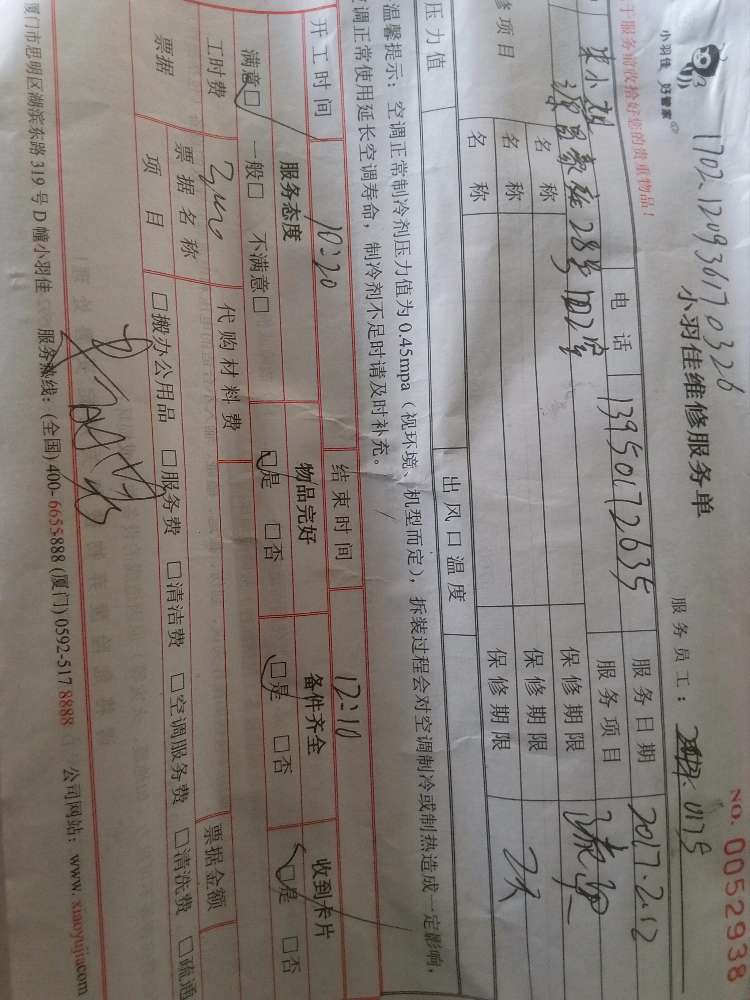 小羽佳 好管家
1702120936170326
NO. 0052938
小羽佳维修服务单
服务员工： 0175
于服务前收拾好您的贵重物品！
电话 13950172635 服务日期 2017.2.12
28号 服务项目
修项目 名称 保修期限
名称 保修期限
名称 保修期限 2天
压力值 出风口温度
温馨提示：空调正常制冷剂压力值为 0.45mpa（视环境、机型而定），拆装过程会对空调制冷或制热造成一定影响，
空调正常使用延长空调寿命，制冷剂不足时请及时补充。
开工时间 10:20 结束时间 12:10
服务态度 物品完好 备件齐全 收到卡片
满意□ 一般□ 不满意□ □是 □否 □是 □否 □是 □否
工时费 代购材料费
票据 票据名称 票据金额
项目 □搬办公用品 □服务费 □清洁费 □空调服务费 □清洗费 □疏通
厦门市思明区湖滨东路 319 号 D 幢小羽佳 服务热线：(全国) 400-6655888 (厦门) 0592-517 8888 公司网站：www.xiaoyujia.com